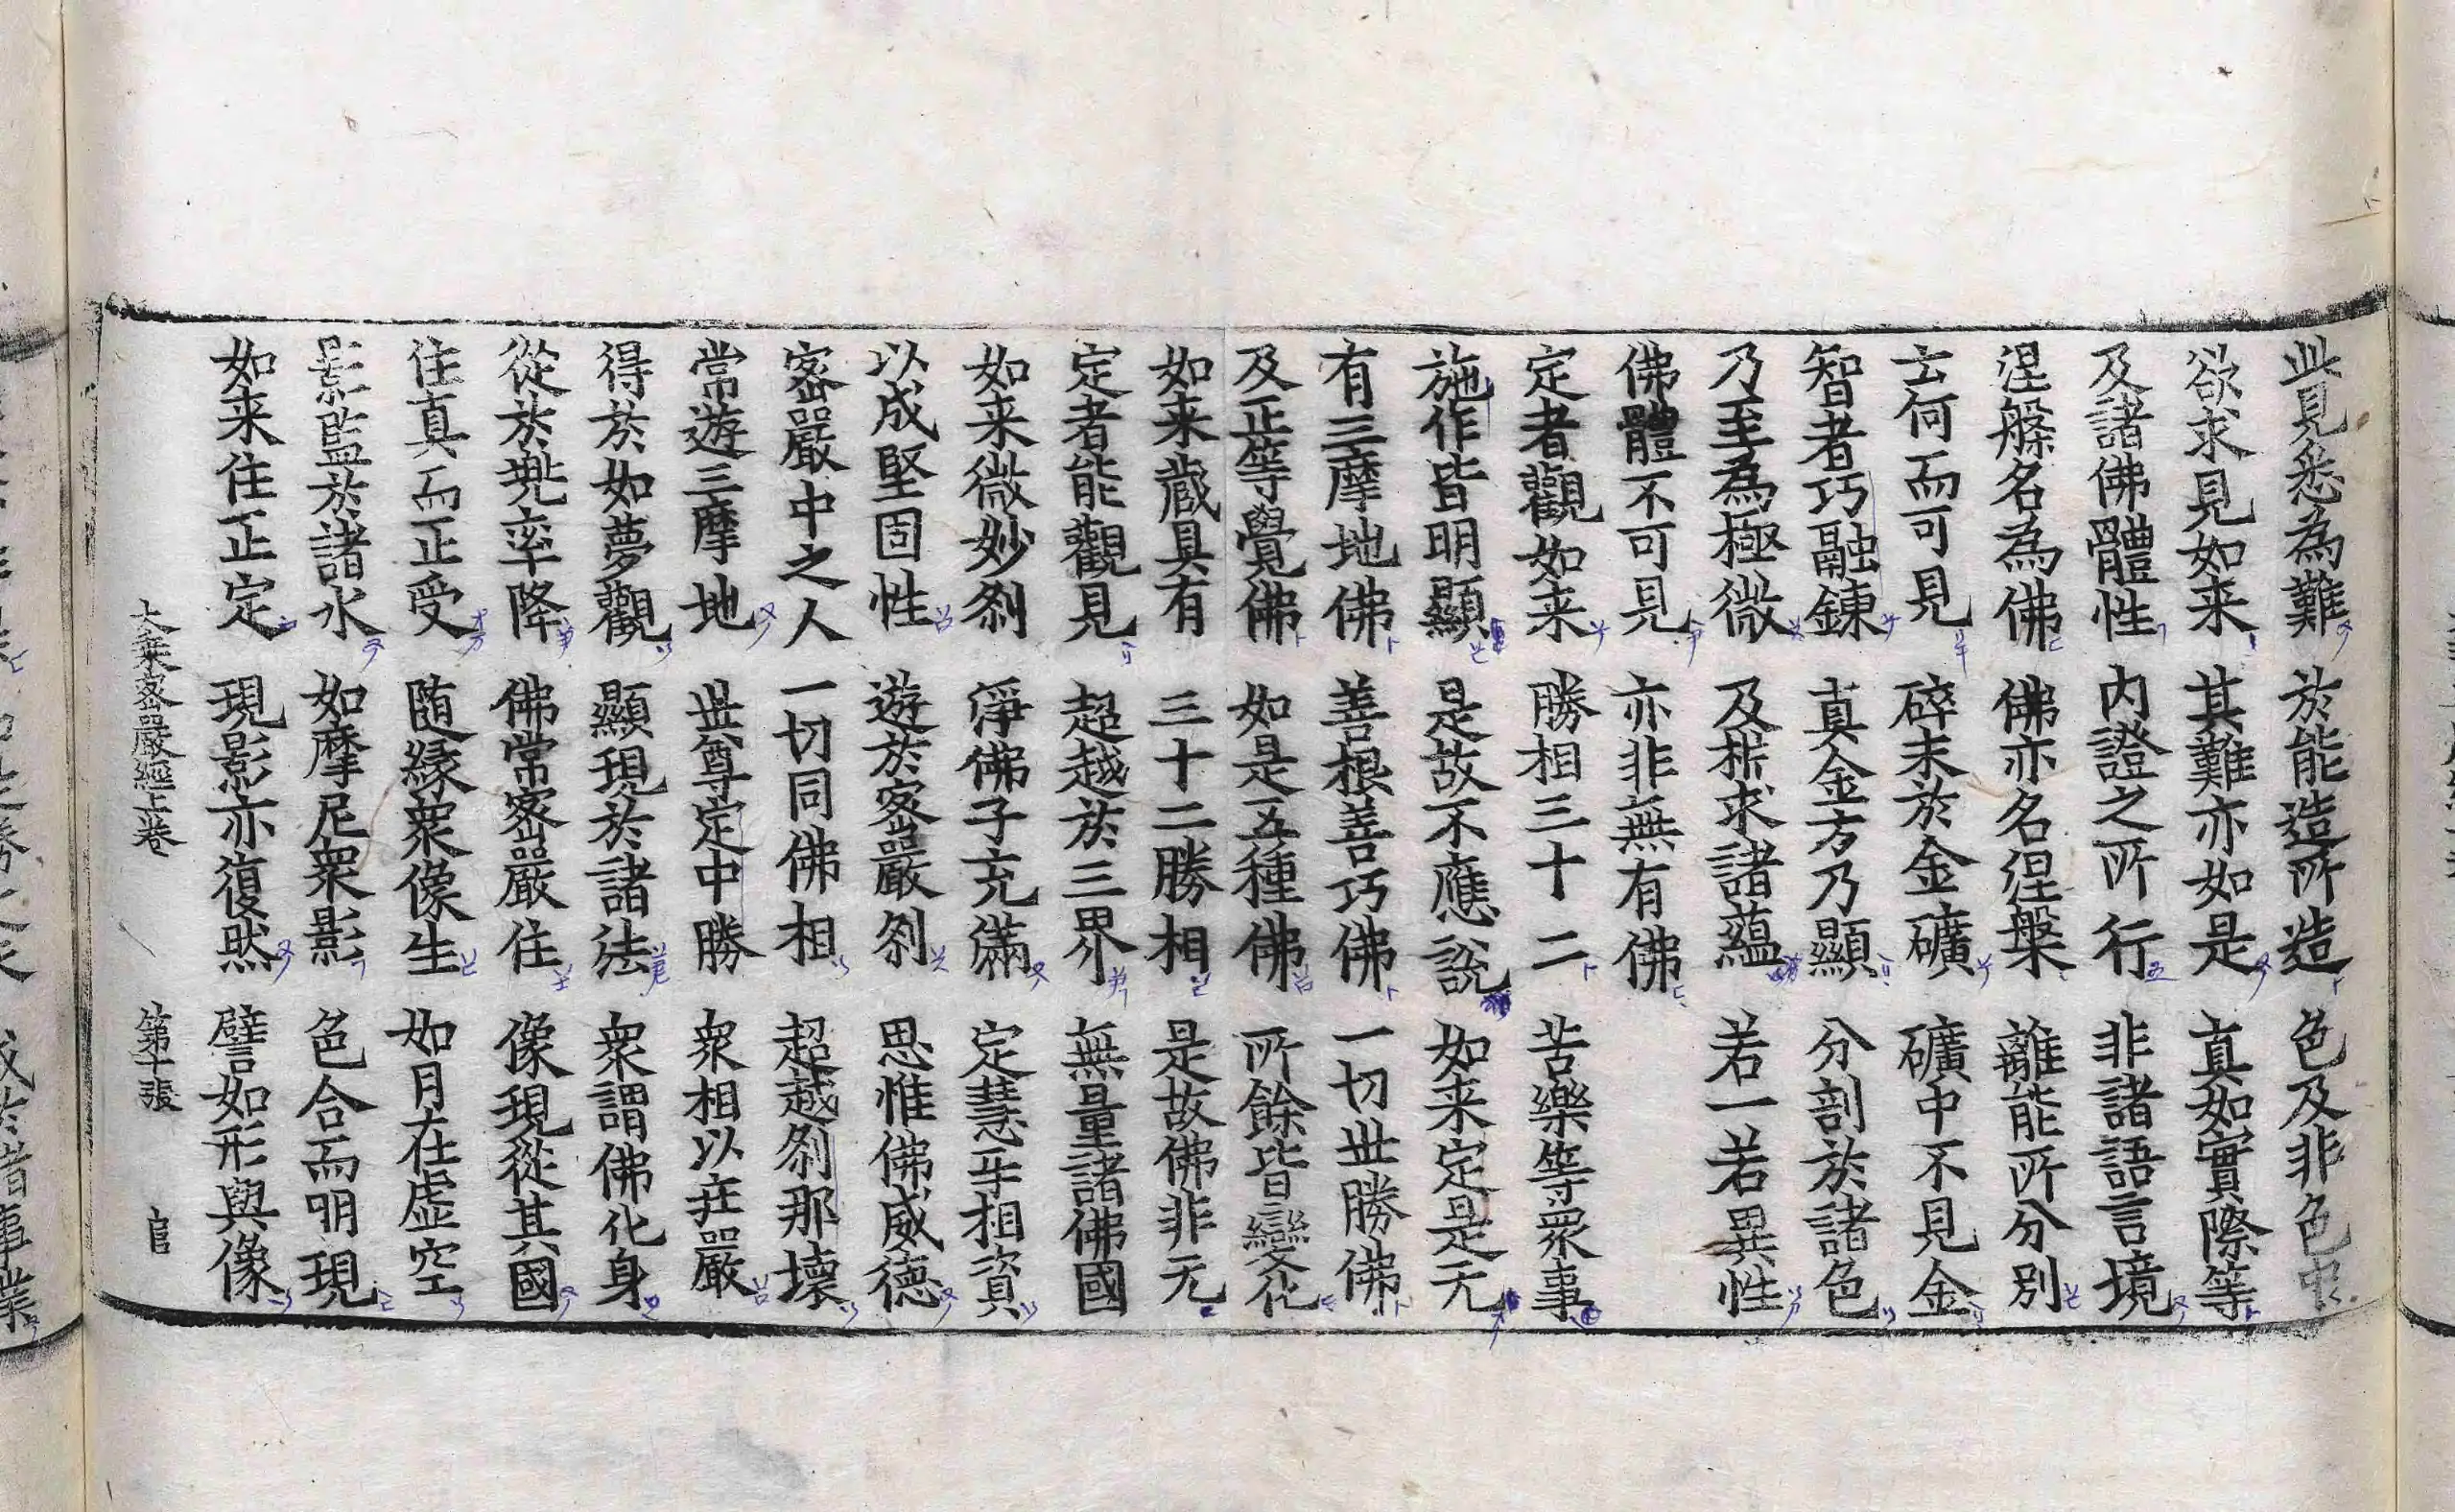 此見悉為難 於能造所造 色及非色中
欲求見如来 其難亦如是 真如實際等
及諸佛體性 内證之所行 非諸語言境
涅槃名為佛 佛亦名涅槃 離能所分別
云何而可見 碎末於金礦 礦中不見金
智者巧融鍊 真金方乃顯 分剖於諸色
乃至為極微 及析求諸蘊 若一若異性
佛體不可見 亦非無有佛
定者觀如来 勝相三十二 苦樂等眾事
施作皆明顯 是故不應說 如来定是无
有三摩地佛 善根善巧佛 一切丗勝佛
及正等覺佛 如是五種佛 所餘皆變化
如来藏具有 三十二勝相 是故佛非无
定者能觀見 超越於三界 無量諸佛國
如来微妙刹 淨佛子充滿 定慧互相資
以成堅固性 遊於密嚴刹 思惟佛威德
密嚴中之人 一切同佛相 超越刹那壞
常遊三摩地 丗尊定中勝 衆相以莊嚴
得於如夢觀 顯現於諸法 衆謂佛化身
從於兠率降 佛常密嚴住 像現從其國
住真而正受 随緣衆像生 如月在虛空
影監於諸水 如摩尼衆影 色合而明現
如来住正定 現影亦復然 譬如形與像
大乗密嚴經上卷 第十張 官